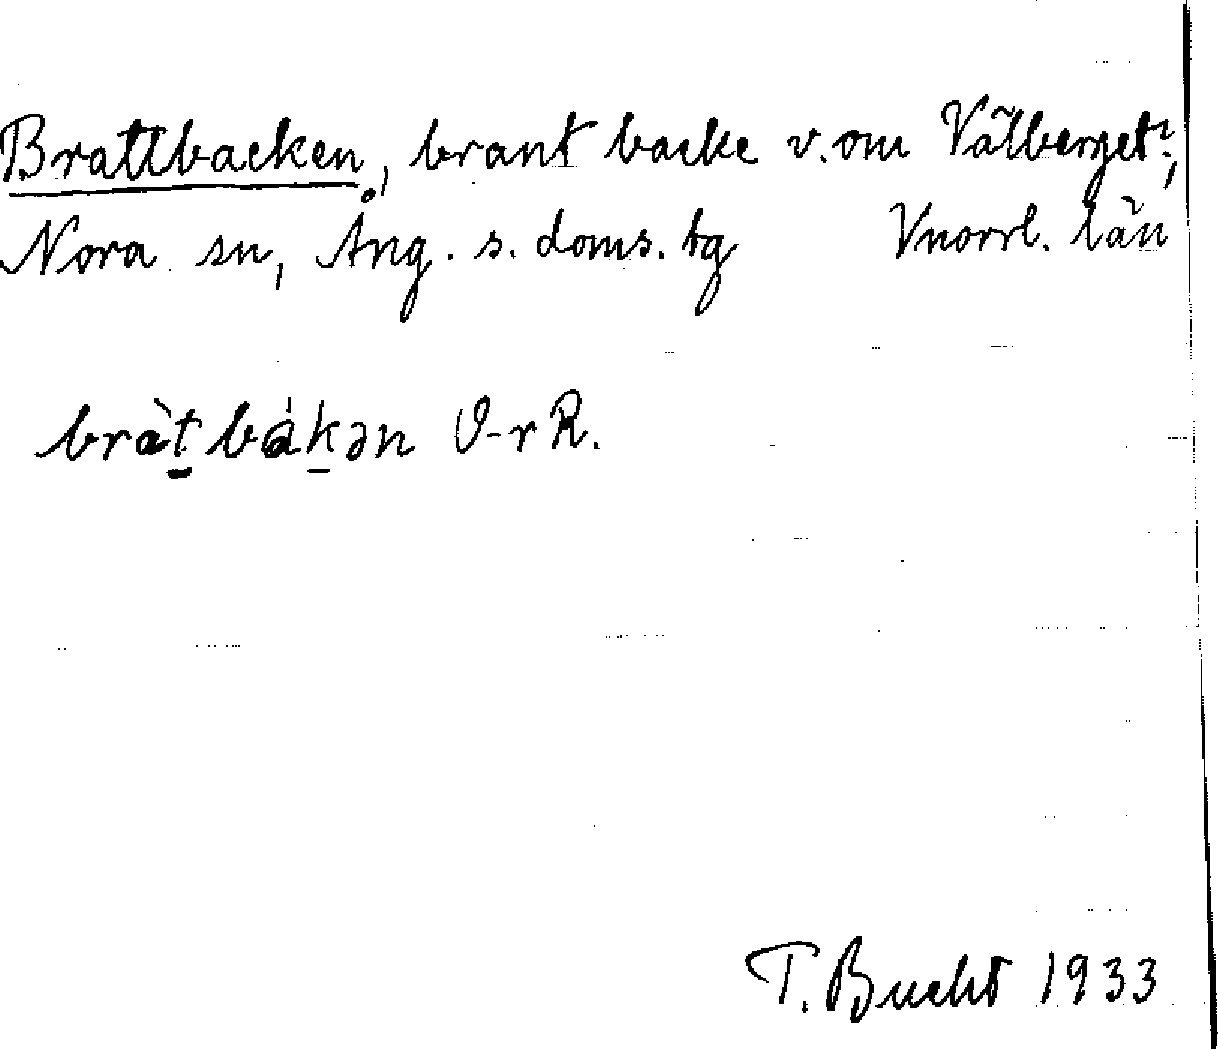 Brattbacken, brant backe v. om Vålberget²,
Nora sn, Ång. s. doms. tg Vnorrl. län
bràt bákən O-r R.
T. Bucht 1933